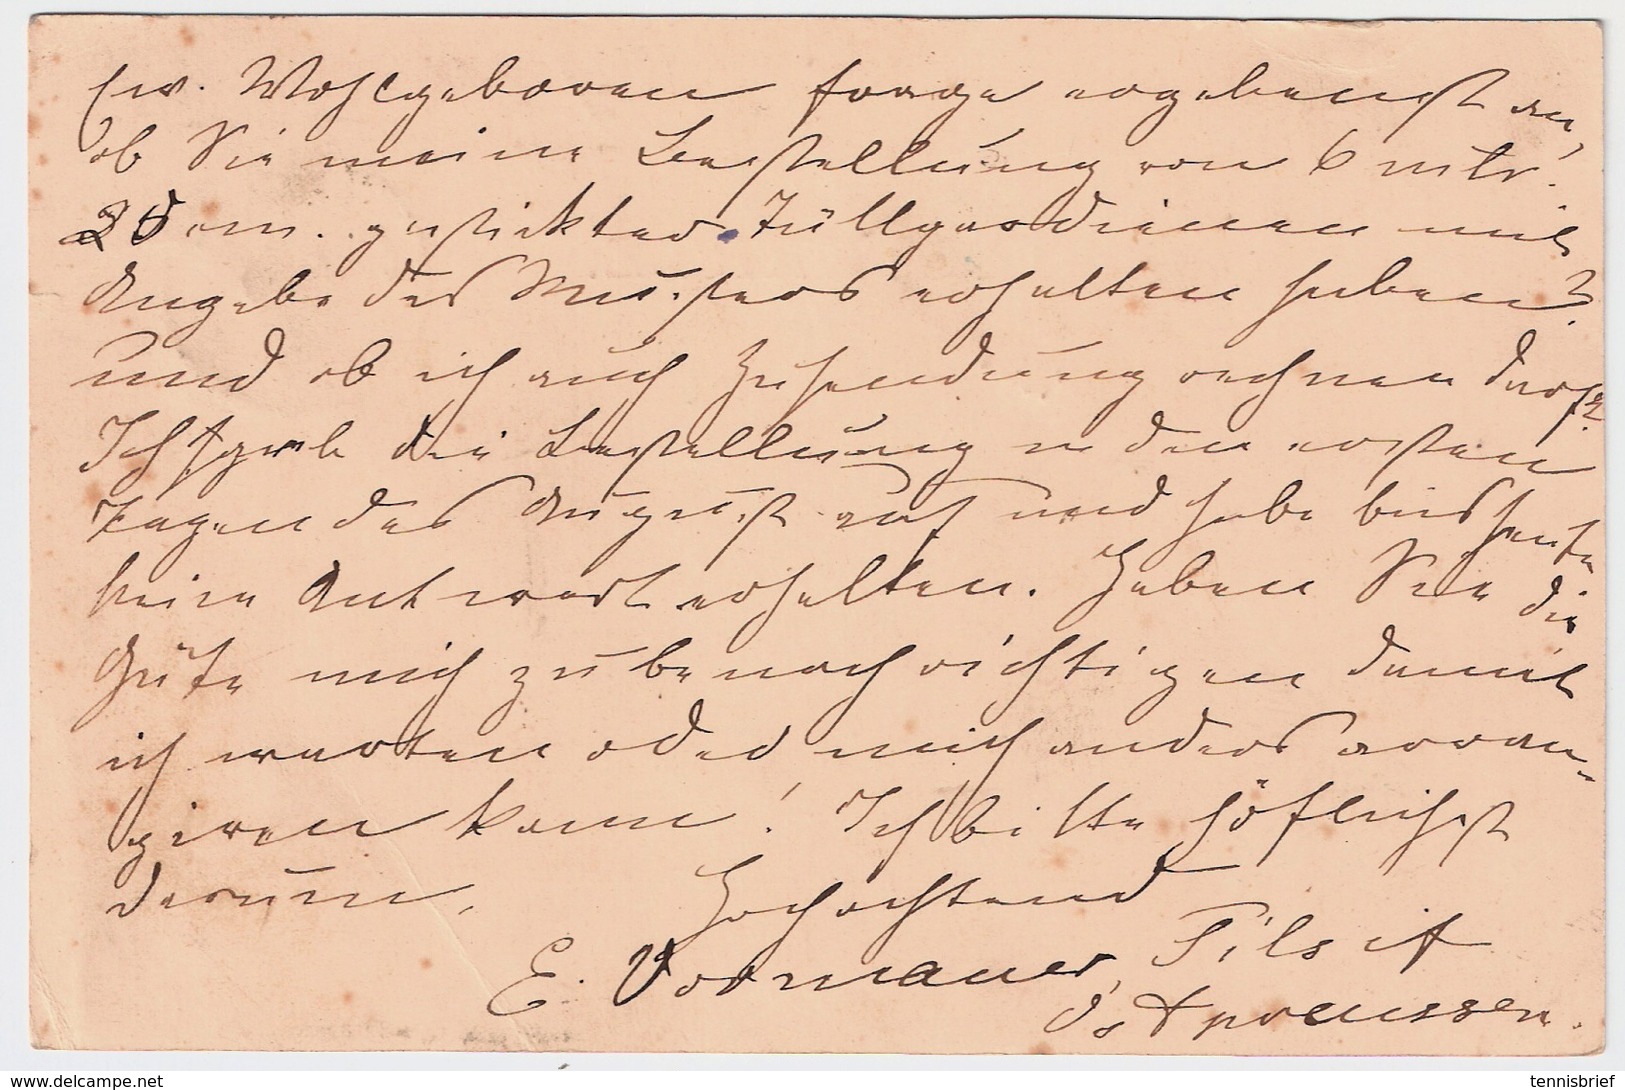 Ew. Wohlgeboren frage ergebenst an,
ob Sie meine Bestellung von 6 mtr.
25 cm. gestickter Tüllgardienen mit
Angabe des Musters erhalten haben?
und ob ich auch Zusendung rechnen darf?
Ich gab die Bestellung in den ersten
Tagen des August auf und habe bis heute
keine Antwort erhalten. Haben Sie die
Güte mich zu benachrichtigen damit
ich warten oder mich anders arran-
giren kann! Ich bitte höflichst
darum.
Hochachtend
E. Vormauer, Tilsit
Ostpreussen.
tennisbrief